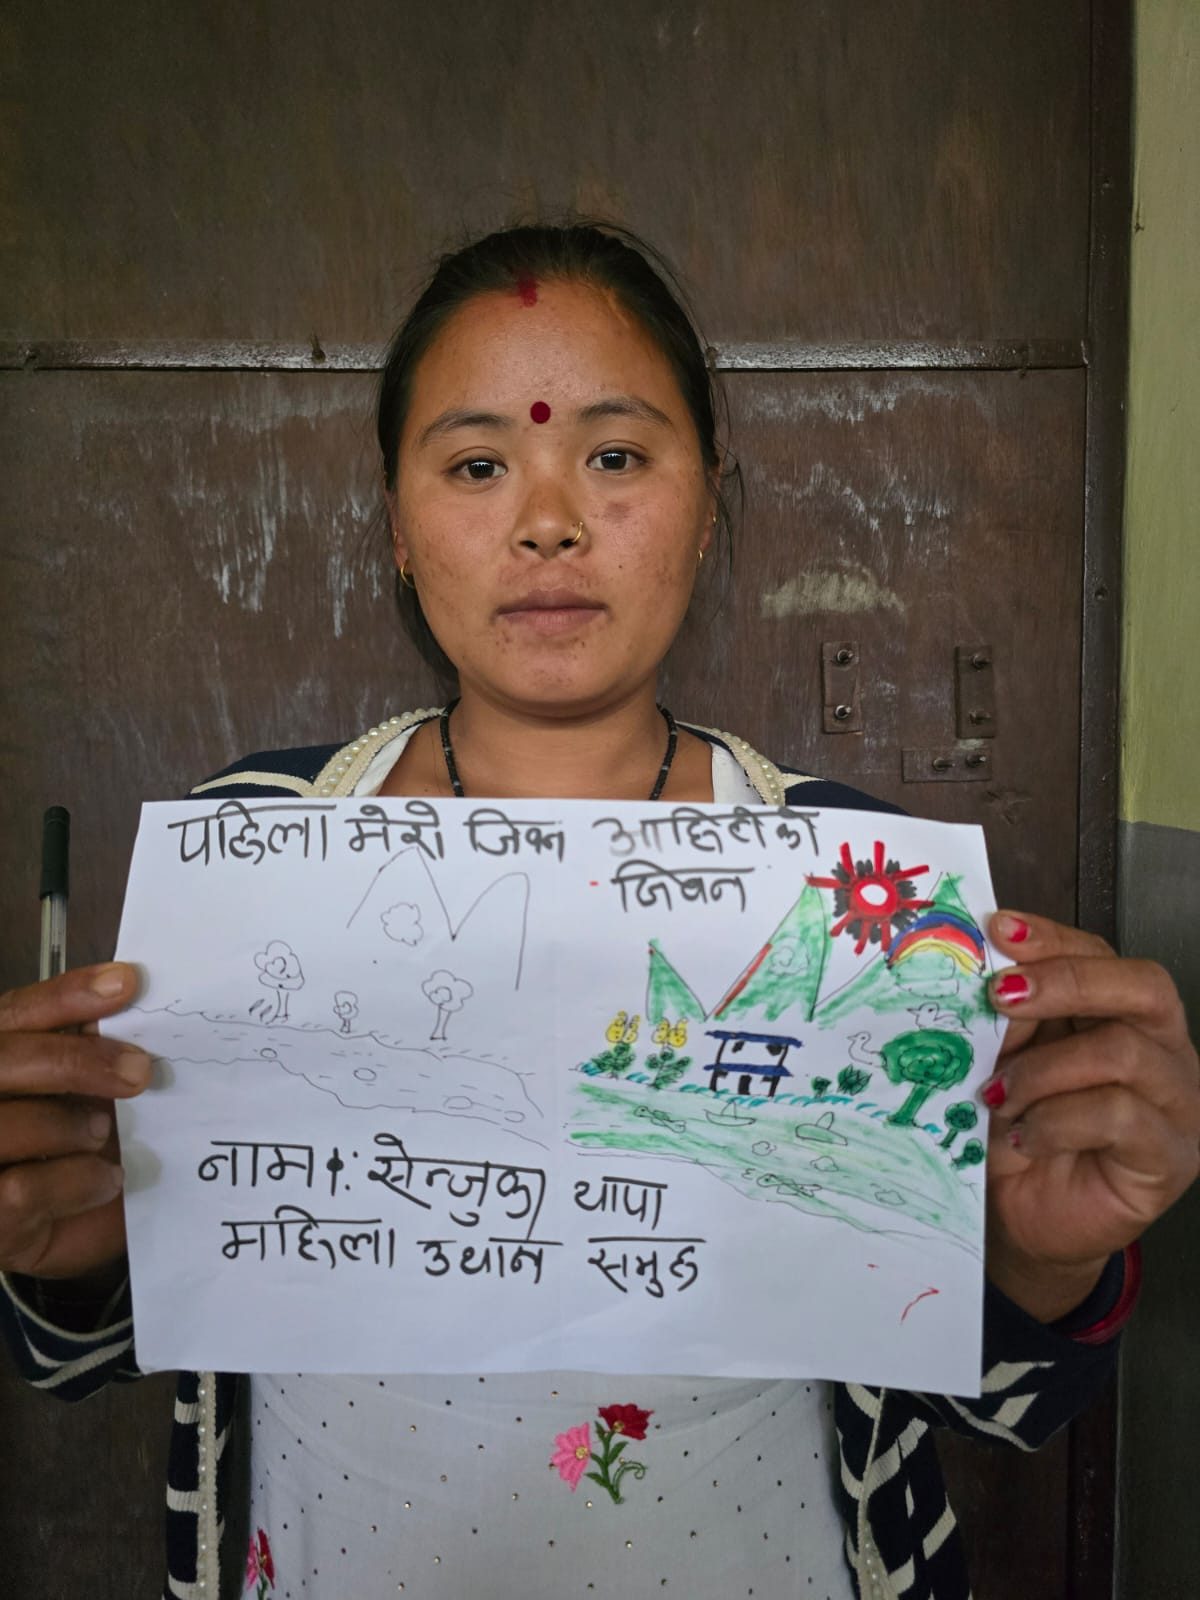 पहिला मेरो जिवन
आहिलेको
जिवन
नाम: सेन्जुका थापा
महिला उथान समुह